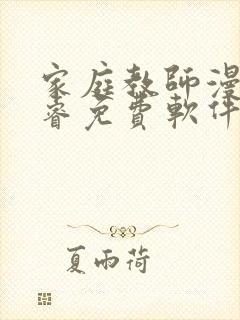 家庭教師漫
睿免費軟件
夏雨荷